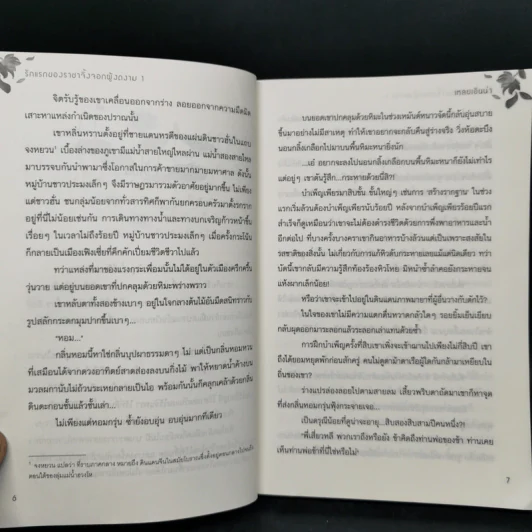 รักแรกของราชาจิ้งจอกผู้งดงาม 1
จิตรับรู้ของเขาเคลื่อนออกจากร่าง ลอยออกจากความมืดมิด
เสาะหาแหล่งกำเนิดของปราณนั้น
เขาหลินหรานตั้งอยู่ที่ชายแดนทรศีของแผ่นดินชาวฮั่นในแถบ
จงหยวน¹ เบื้องล่างของภูเขามีแม่น้ำสายใหญ่ไหลผ่าน แม่น้ำสองสายไหล
มาบรรจบกันนำพามาซึ่งโอกาสในการค้าขายมากมายมหาศาล ดังนั้น
หมู่บ้านชาวประมงเล็กๆ จึงมีราษฎรมารวมตัวอาศัยอยู่มากขึ้น ไม่เพียง
แต่ชาวฮั่น ชนกลุ่มน้อยจากทั่วสารทิศก็พากันยกครอบครัวมาตั้งรกราก
อยู่ที่นี่ไม่น้อยเช่นกัน การเดินทางทางน้ำและทางบกเจริญก้าวหน้าขึ้น
เรื่อยๆ ในเวลาไม่ถึงร้อยปี หมู่บ้านชาวประมงเล็กๆ เมื่อครั้งกระโน้น
ก็กลายเป็นเมืองเฟิงเซี่ยที่คึกคักเปี่ยมชีวิตชีวาไปแล้ว
ทว่าแหล่งที่มาของแรงกระเพื่อมนั้นไม่ได้อยู่ในตัวเมืองครึกครื้น
วุ่นวาย แต่อยู่บนยอดเขาที่ปกคลุมด้วยหิมะพร่างพราว
เขาหลับตาทั้งสองข้างเบาๆ อยู่ในโจกลางต้นไม้อันมืดสนิทราวกับ
รูปสลักกระตุกมุมปากขึ้นเบาๆ...
'หอม...'
กลิ่นหอมนี้หาใช่กลิ่นบุปผาธรรมดาๆ ไม่ แต่เป็นกลิ่นหอมหวน
ที่เสมือนได้จากดวงอาทิตย์สาดส่องลงบนกิ่งไผ่ พาให้หยาดน้ำค้างบน
มวลผกานับไม่ถ้วนระเหยกลายเป็นไอ พร้อมกันนั้นก็คลุกเคล้าด้วยกลิ่น
ดินตะกอนชั้นแล้วชั้นเล่า...
ไม่เพียงแต่หอมกรุ่น ซ้ำยังอบอุ่น อบอุ่นมากทีเดียว
¹ จงหยวน แปลว่า ที่ราบภาคกลาง หมายถึง ดินแดนจีนในสมัยโบราณซึ่งตั้งอยู่
ตอนใต้ของลุ่มแม่น้ำฮวงโห
6
เหลยเอินน่า
บนยอดเขาปกคลุมด้วยหิมะในช่วงเหมันต์หนาวจัดนี้กลับอุ่นสบาย
ขึ้นมาอย่างไม่มีสาเหตุ ทำให้เขาอยากจะกลับคืนสู่ร่างจริง วิ่งห้อตะบึง
นอนกลิ้งเกลือกไปมาบนพื้นหิมะหนานิ่งนัก
...เอ๋ อยากจะลงไปนอนกลิ้งเกลือกบนพื้นหิมะหนาก็ยังไม่เท่าไร
แต่อยู่ๆ เขาดันรู้สึก...กระหายด้วยนี่สิ?!
บำเพ็ญเพียรมาสิบชั้น ชั้นใหญ่ๆ เช่นการ 'สร้างรากฐาน' ในช่วง
แรกเริ่มล้วนต้องบำเพ็ญเพียรนับร้อยปี หลังจากบำเพ็ญเพียรร้อยปีแรก
สำเร็จก็ดูเหมือนว่าเขาจะไม่ต้องดำรงชีวิตด้วยการพึ่งพาอาหารและน้ำ
อีกต่อไป ที่บางครั้งบางคราเขากินอาหารบ้างล้วนแต่เป็นเพราะสงสัยใน
รสชาติของสิ่งนั้น ไม่เกี่ยวกับการแก้หิวดับกระหายเลยแม้แต่นิดเดียว ทว่า
บัดนี้เขากลับมีความรู้สึกท้องร้องหิวโหย มิหนำซ้ำลำคอยังกระหายจน
แห้งผากเล็กน้อย!
หรือว่าเขาจะเข้าไปอยู่ในดินแดนภาพมายาที่ผู้อื่นวางกับดักไว้?
ในใจของเขาไม่มีความแตกตื่นหวาดกลัวใดๆ รอยยิ้มเย็นเยียบ
กลับผุดออกมาระลอกแล้วระลอกเล่าแทนด้วยซ้ำ
การฝึกบำเพ็ญครั้งที่สิบเขาเพิ่งจะเฝ้าฌานไปเพียงไม่กี่สิบปี เขา
ถึงได้ยอมหยุดพักก่อนสักครู่ คนไม่ดูตาม้าตาเรือผู้ใดกันกล้ามาเหยียบใน
ถิ่นของเขา?
ร่างแปรล่องลอยไปตามสายลม เสี้ยวพริบตาถัดมาเขาก็หาจุด
ที่ส่งกลิ่นหอมกรุ่นฟุ้งกระจายเจอ...
เป็นดรุณีน้อยที่ดูน่าจะอายุ...สิบสองสิบสามปีคนหนึ่ง?!
"พี่เสี่ยวหลี่ พวกเราถึงหรือยัง ข้าคิดถึงท่านพ่อของข้า ท่านเคย
เห็นท่านพ่อข้าที่นี่ใช่หรือไม่"
7